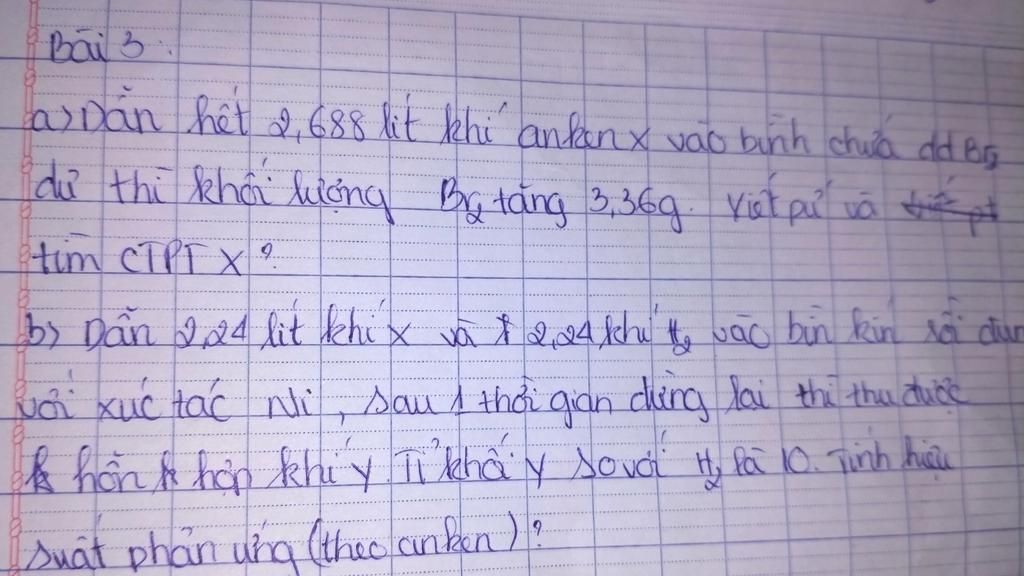 Bài 3:
a) Dẫn hết 2,688 lít khí anken X vào bình chứa dd Br2
dư thì khối lượng Br2 tăng 3,36g. Viết pứ và
tìm CTPT X?
b) Dẫn 2,24 lít khí X và 2,24 khí H2 vào bìn kín rồi đun
với xúc tác Ni, sau 1 thời gian dừng lại thì thu được
hỗn hợp khí Y. Tỉ khối Y so với H2 là 10. Tính hiệu
suất phản ứng (theo anken)?